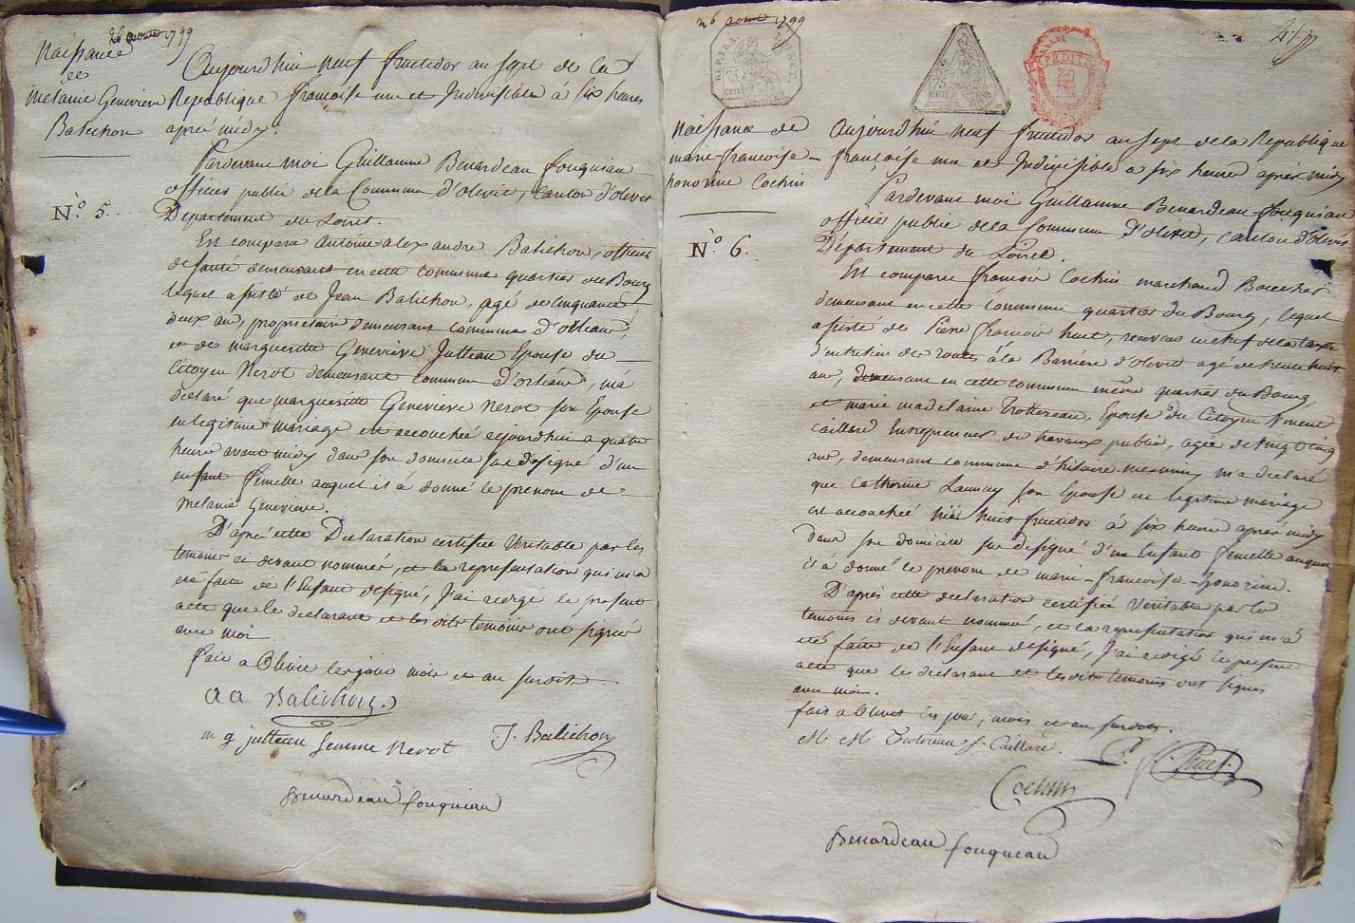 26 aout 1799
Naissance
de
Melanie Genevieve
Balichon
N.º 5.
Aujourdhui neuf fructidor an sept de la
Republique françoise une et Indivisible à six heures
après midy.
Pardevant moi Guillaume Benardeau fouqueau
officier public de la Commune d'olivet, canton d'olivet
Département du Loiret.
Est comparu antoine alexandre Balichon, officier
de santé demeurant en cette commune quartier du Bourg
lequel assisté de Jean Balichon, agé de cinquante
deux ans, proprietaire demeurant commune d'orleans,
et de marguerite Genevieve Jutteau Epouse du
Citoyen Nerot demeurant commune d'orleans, m'a
declaré que marguerite Genevieve Nerot son Epouse
en legitime mariage est accouchée aujourdhui a quatre
heures avant midy dans son domicile sus designé d'un
enfant femelle auquel il à donné le prenom de
Melanie Genevieve.
D'après cette Declaration certifiée veritable par les
temoins ci devant nommés, et la representation qui m'a
été faite de l'Enfant designé, J'ai redigé le present
acte que le declarant et les dits temoins ont signés
avec moi
fait a Olivet les jour mois et an susdits
A A Balichon
m g jutteau femme Nerot J. Balichon
Benardeau fouqueau
26 aout 1799
Naissance de
marie francoise
honorine Cochin
N.º 6.
Aujourdhui neuf fructidor an sept de la Republique
françoise une et Indivisible a six heures après midy
Pardevant moi Guillaume Benardeau fouqueau
officier public de la Commune d'olivet, canton d'olivet
Département du Loiret.
Est comparu françois Cochin marchand Boucher
demeurant en cette commune quartier du Bourg, lequel
assisté de Pierre françois huet, receveur en chef de la taxe
d'entretien des routes à la Barriere d'olivet agé de trente huit
ans, demeurant en cette commune même quartier du Bourg
et marie madelaine Trottereau, Epouse du Citoyen
caillard Entrepreneur de travaux publics, agée de vingt cinq
ans, demeurant commune d'hilaire mesmin, m'a declaré
que Catherine Launay son Epouse en legitime mariage
est accouchée hier huit fructidor à six heures après midy
dans son domicile sus designé d'un Enfant femelle auquel
il à donné le prenom de marie-francoise-honorine.
D'après cette declaration certifiée veritable par les
temoins ci devant nommés, et la representation qui m'a
été faite de l'Enfant designé, J'ai redigé le present
acte que le declarant et les dits temoins ont signés
avec moi.
fait a olivet les jour, mois et an susdits.
M. M. Trottereau f. Caillard. P. f. Huet
Cochin
Benardeau fouqueau